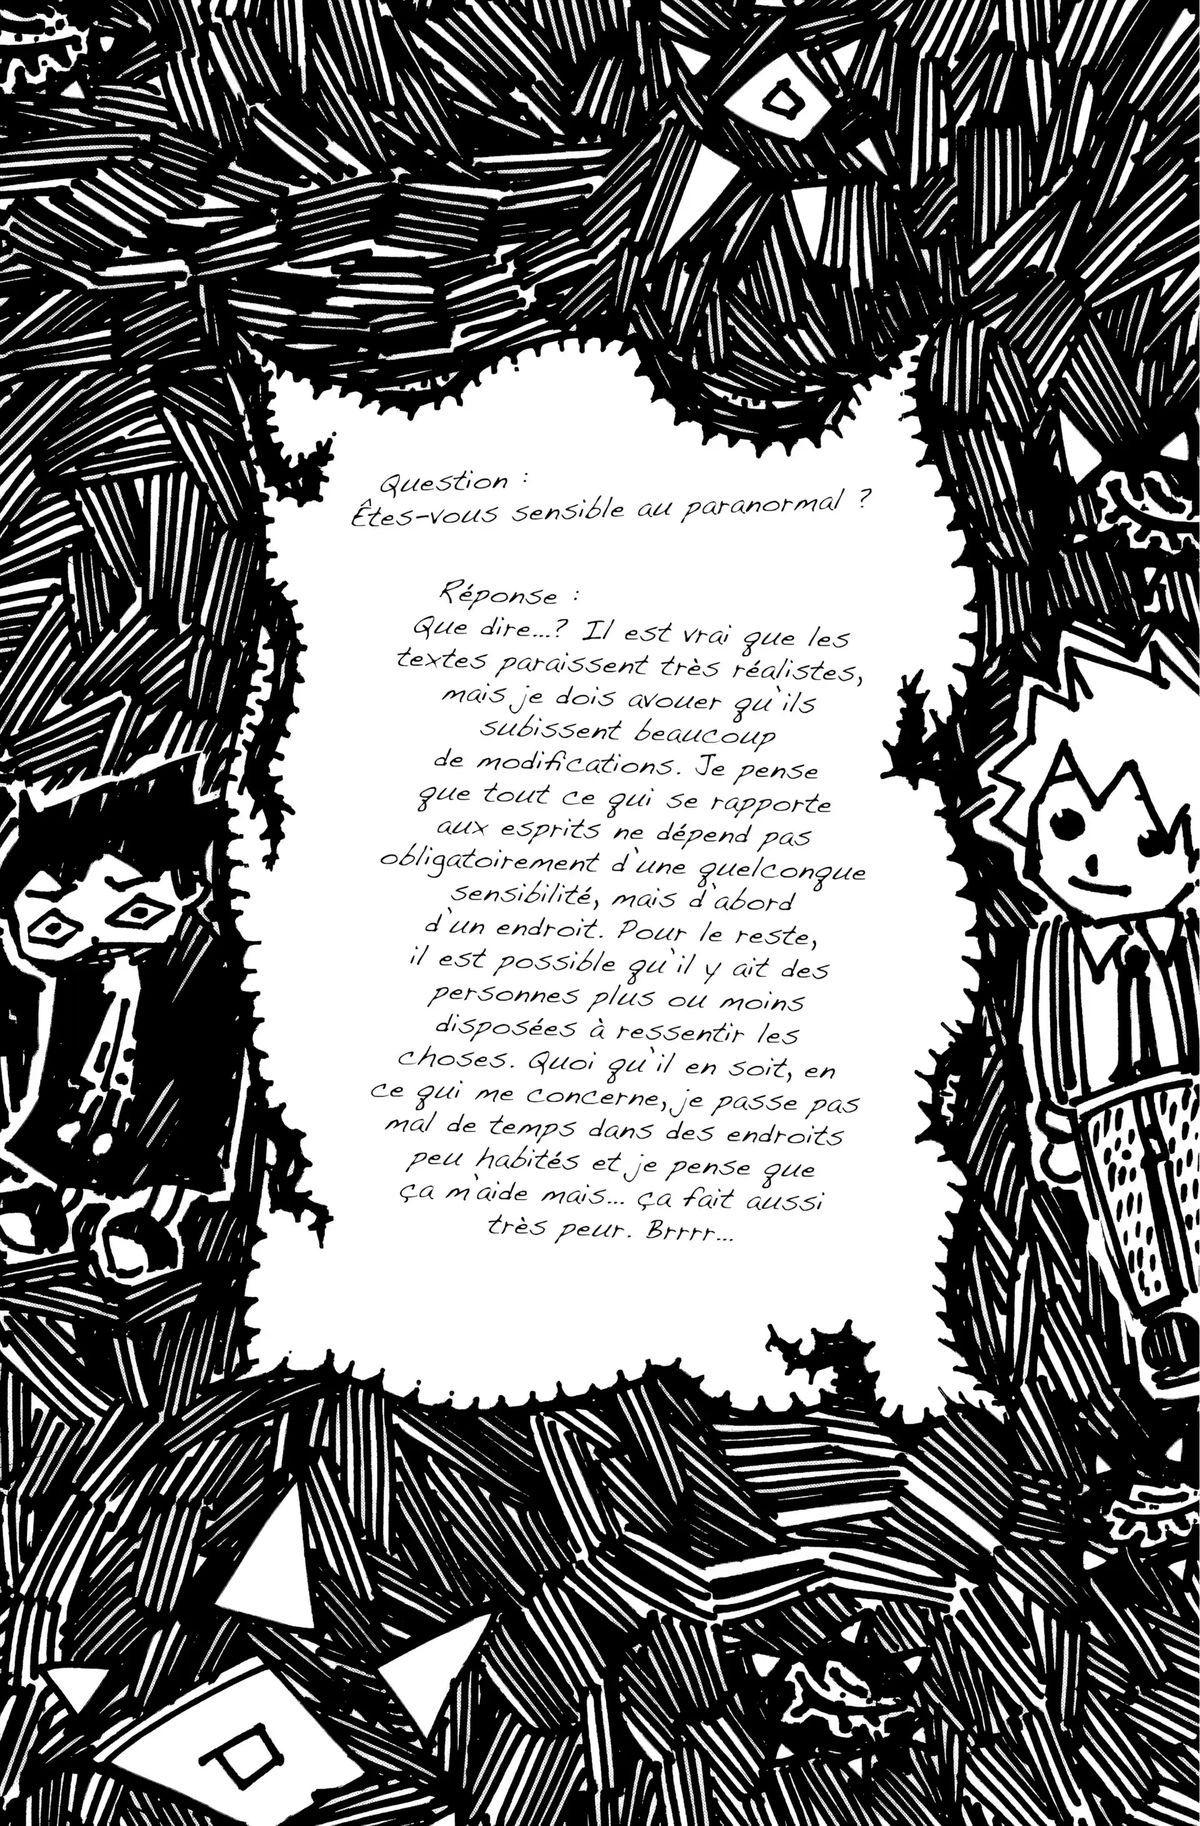 Question :
Êtes-vous sensible au paranormal ?
Réponse :
Que dire...? Il est vrai que les
textes paraissent très réalistes,
mais je dois avouer qu'ils
subissent beaucoup
de modifications. Je pense
que tout ce qui se rapporte
aux esprits ne dépend pas
obligatoirement d'une quelconque
sensibilité, mais d'abord
d'un endroit. Pour le reste,
il est possible qu'il y ait des
personnes plus ou moins
disposées à ressentir les
choses. Quoi qu'il en soit, en
ce qui me concerne, je passe pas
mal de temps dans des endroits
peu habités et je pense que
ça m'aide mais... ça fait aussi
très peur. Brrrr...